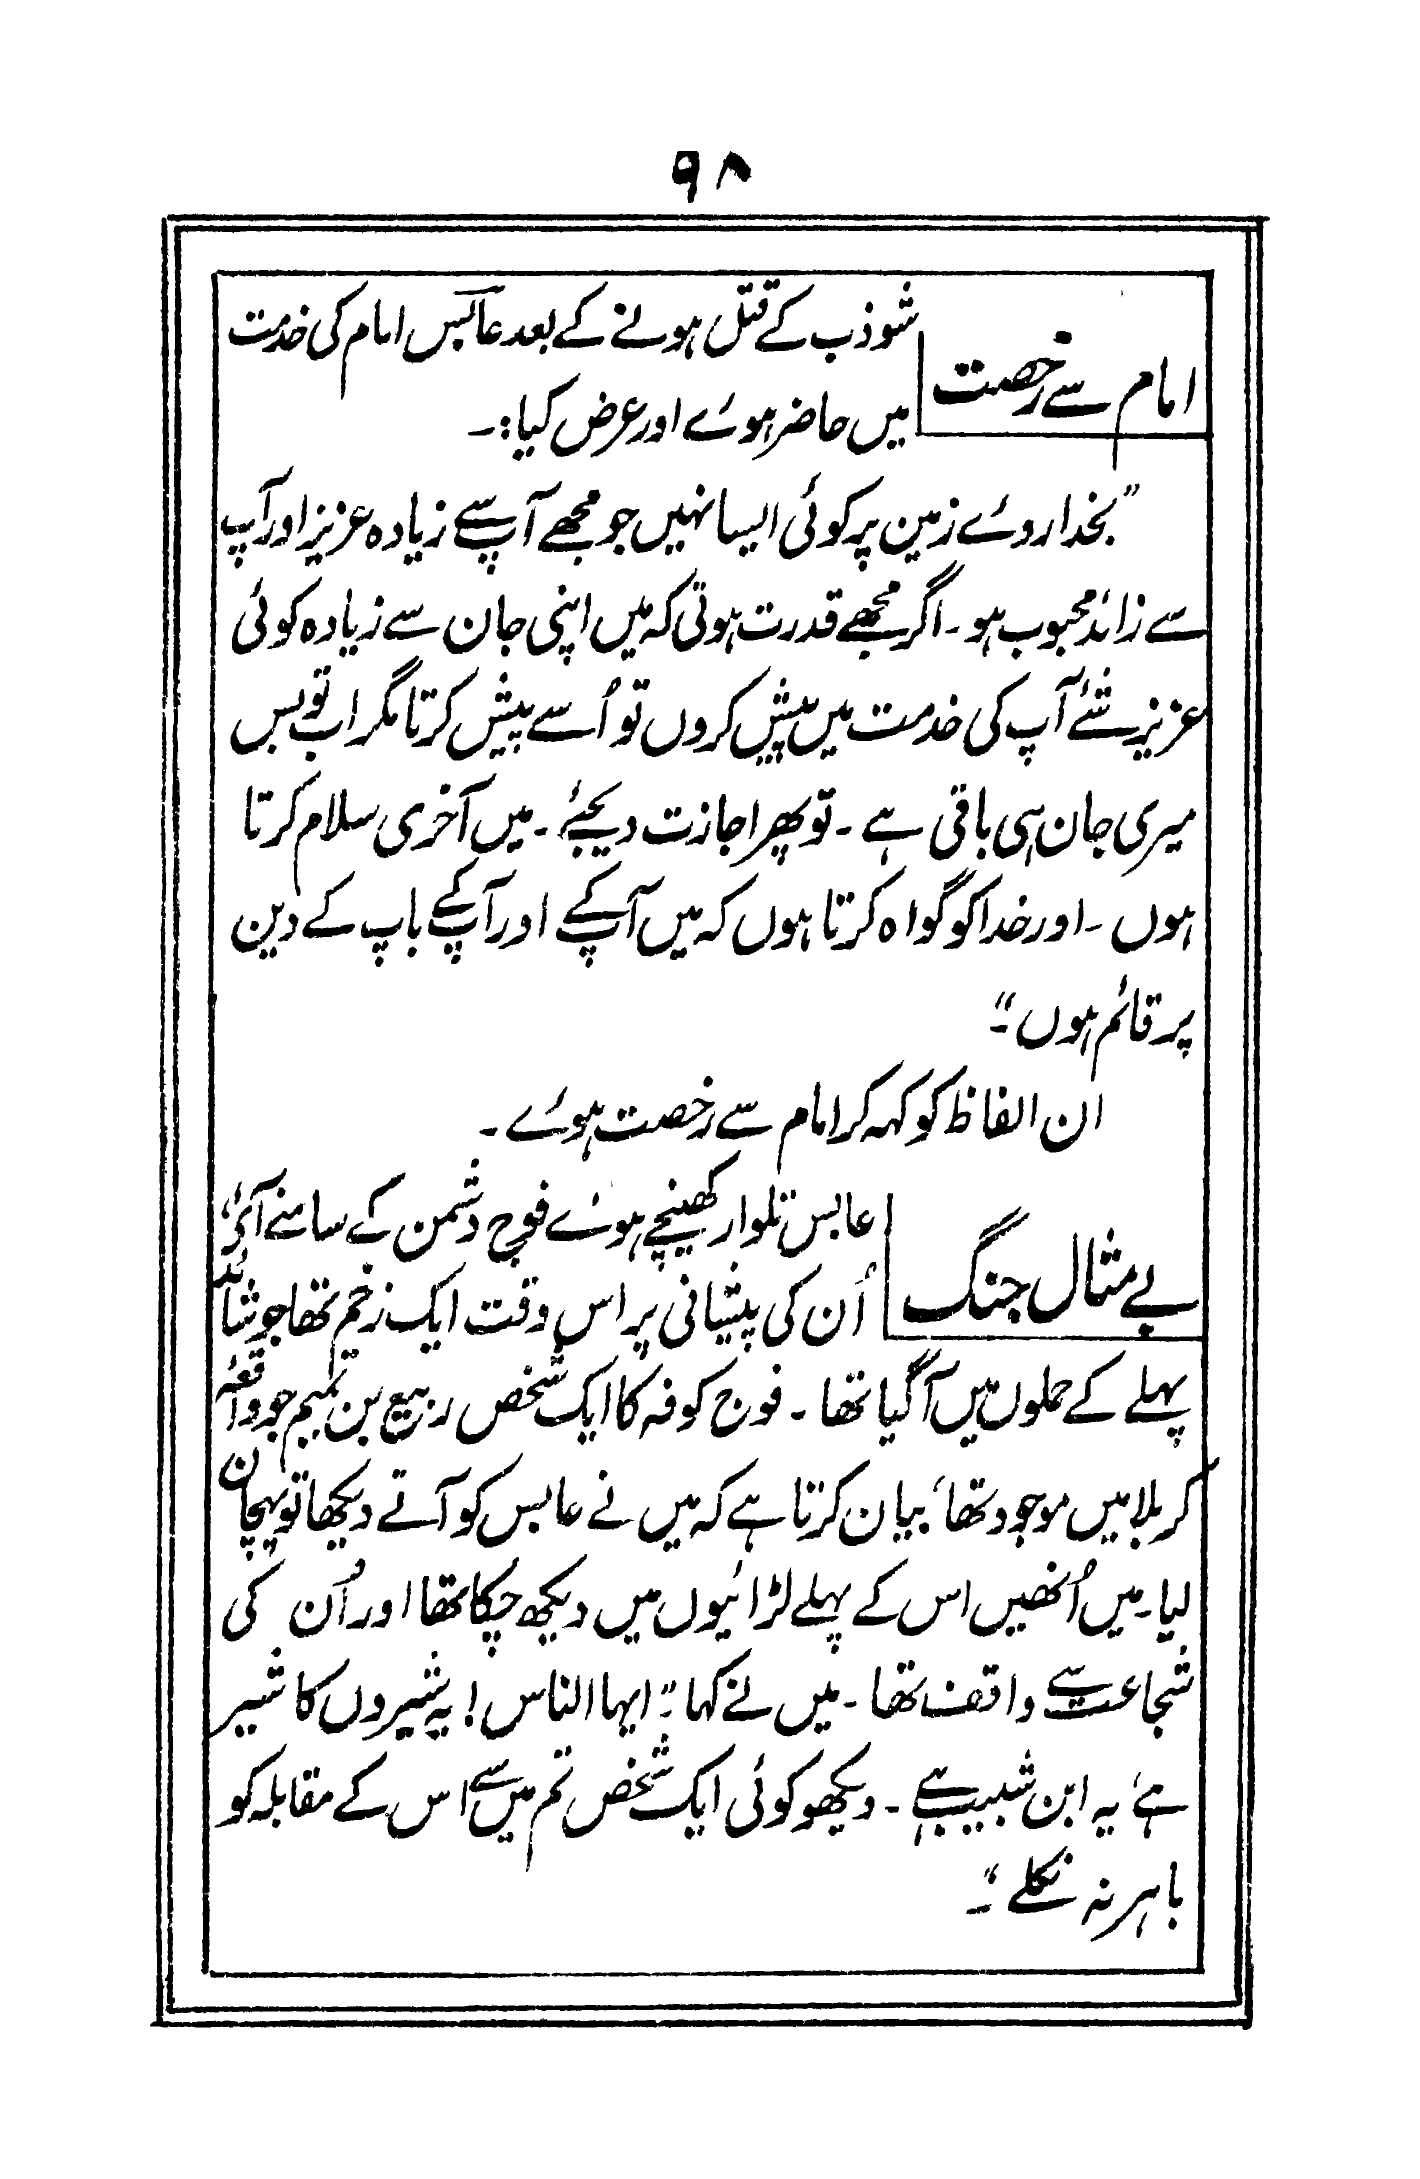 ۹۸
امام سے رخصت
شوذب کے قتل ہونے کے بعد عابسؓ امام کی خدمت
میں حاضر ہوئے اور عرض کیا:۔
”بخدا روئے زمین پر کوئی ایسا نہیں جو مجھے آپ سے زیادہ عزیز اور آپ
سے زائد محبوب ہو۔ اگر مجھے قدرت ہوتی کہ میں اپنی جان سے زیادہ کوئی
عزیز شئے آپ کی خدمت میں پیش کروں تو اُسے پیش کرتا مگر اب تو بس
میری جان ہی باقی ہے۔ تو پھر اجازت دیجئے۔ میں آخری سلام کرتا
ہوں۔ اور خدا کو گواہ کرتا ہوں کہ میں آپ کے اور آپ کے باپ کے دین
پر قائم ہوں“۔
ان الفاظ کو کہہ کر امام سے رخصت ہوئے۔
بے مثال جنگ
عابس تلوار کھینچے ہوئے فوج دشمن کے سامنے آئے،
اُن کی پیشانی پر اس وقت ایک زخم تھا جو شائد
پہلے کے حملوں میں آگیا تھا۔ فوج کوفہ کا ایک شخص ربیع بن تمیم جو واقعۂ
کربلا میں موجود تھا، بیان کرتا ہے کہ میں نے عابس کو آتے دیکھا تو پہچان
لیا۔ میں اُنھیں اس کے پہلے لڑائیوں میں دیکھ چکا تھا اور اُن کی
شجاعت سے واقف تھا۔ میں نے کہا۔ ”ایہا الناس! یہ شیروں کا شیر
ہے، یہ ابن شبیب ہے۔ دیکھو کوئی ایک شخص تم میں سے اس کے مقابلہ کو
باہر نہ نکلے“۔